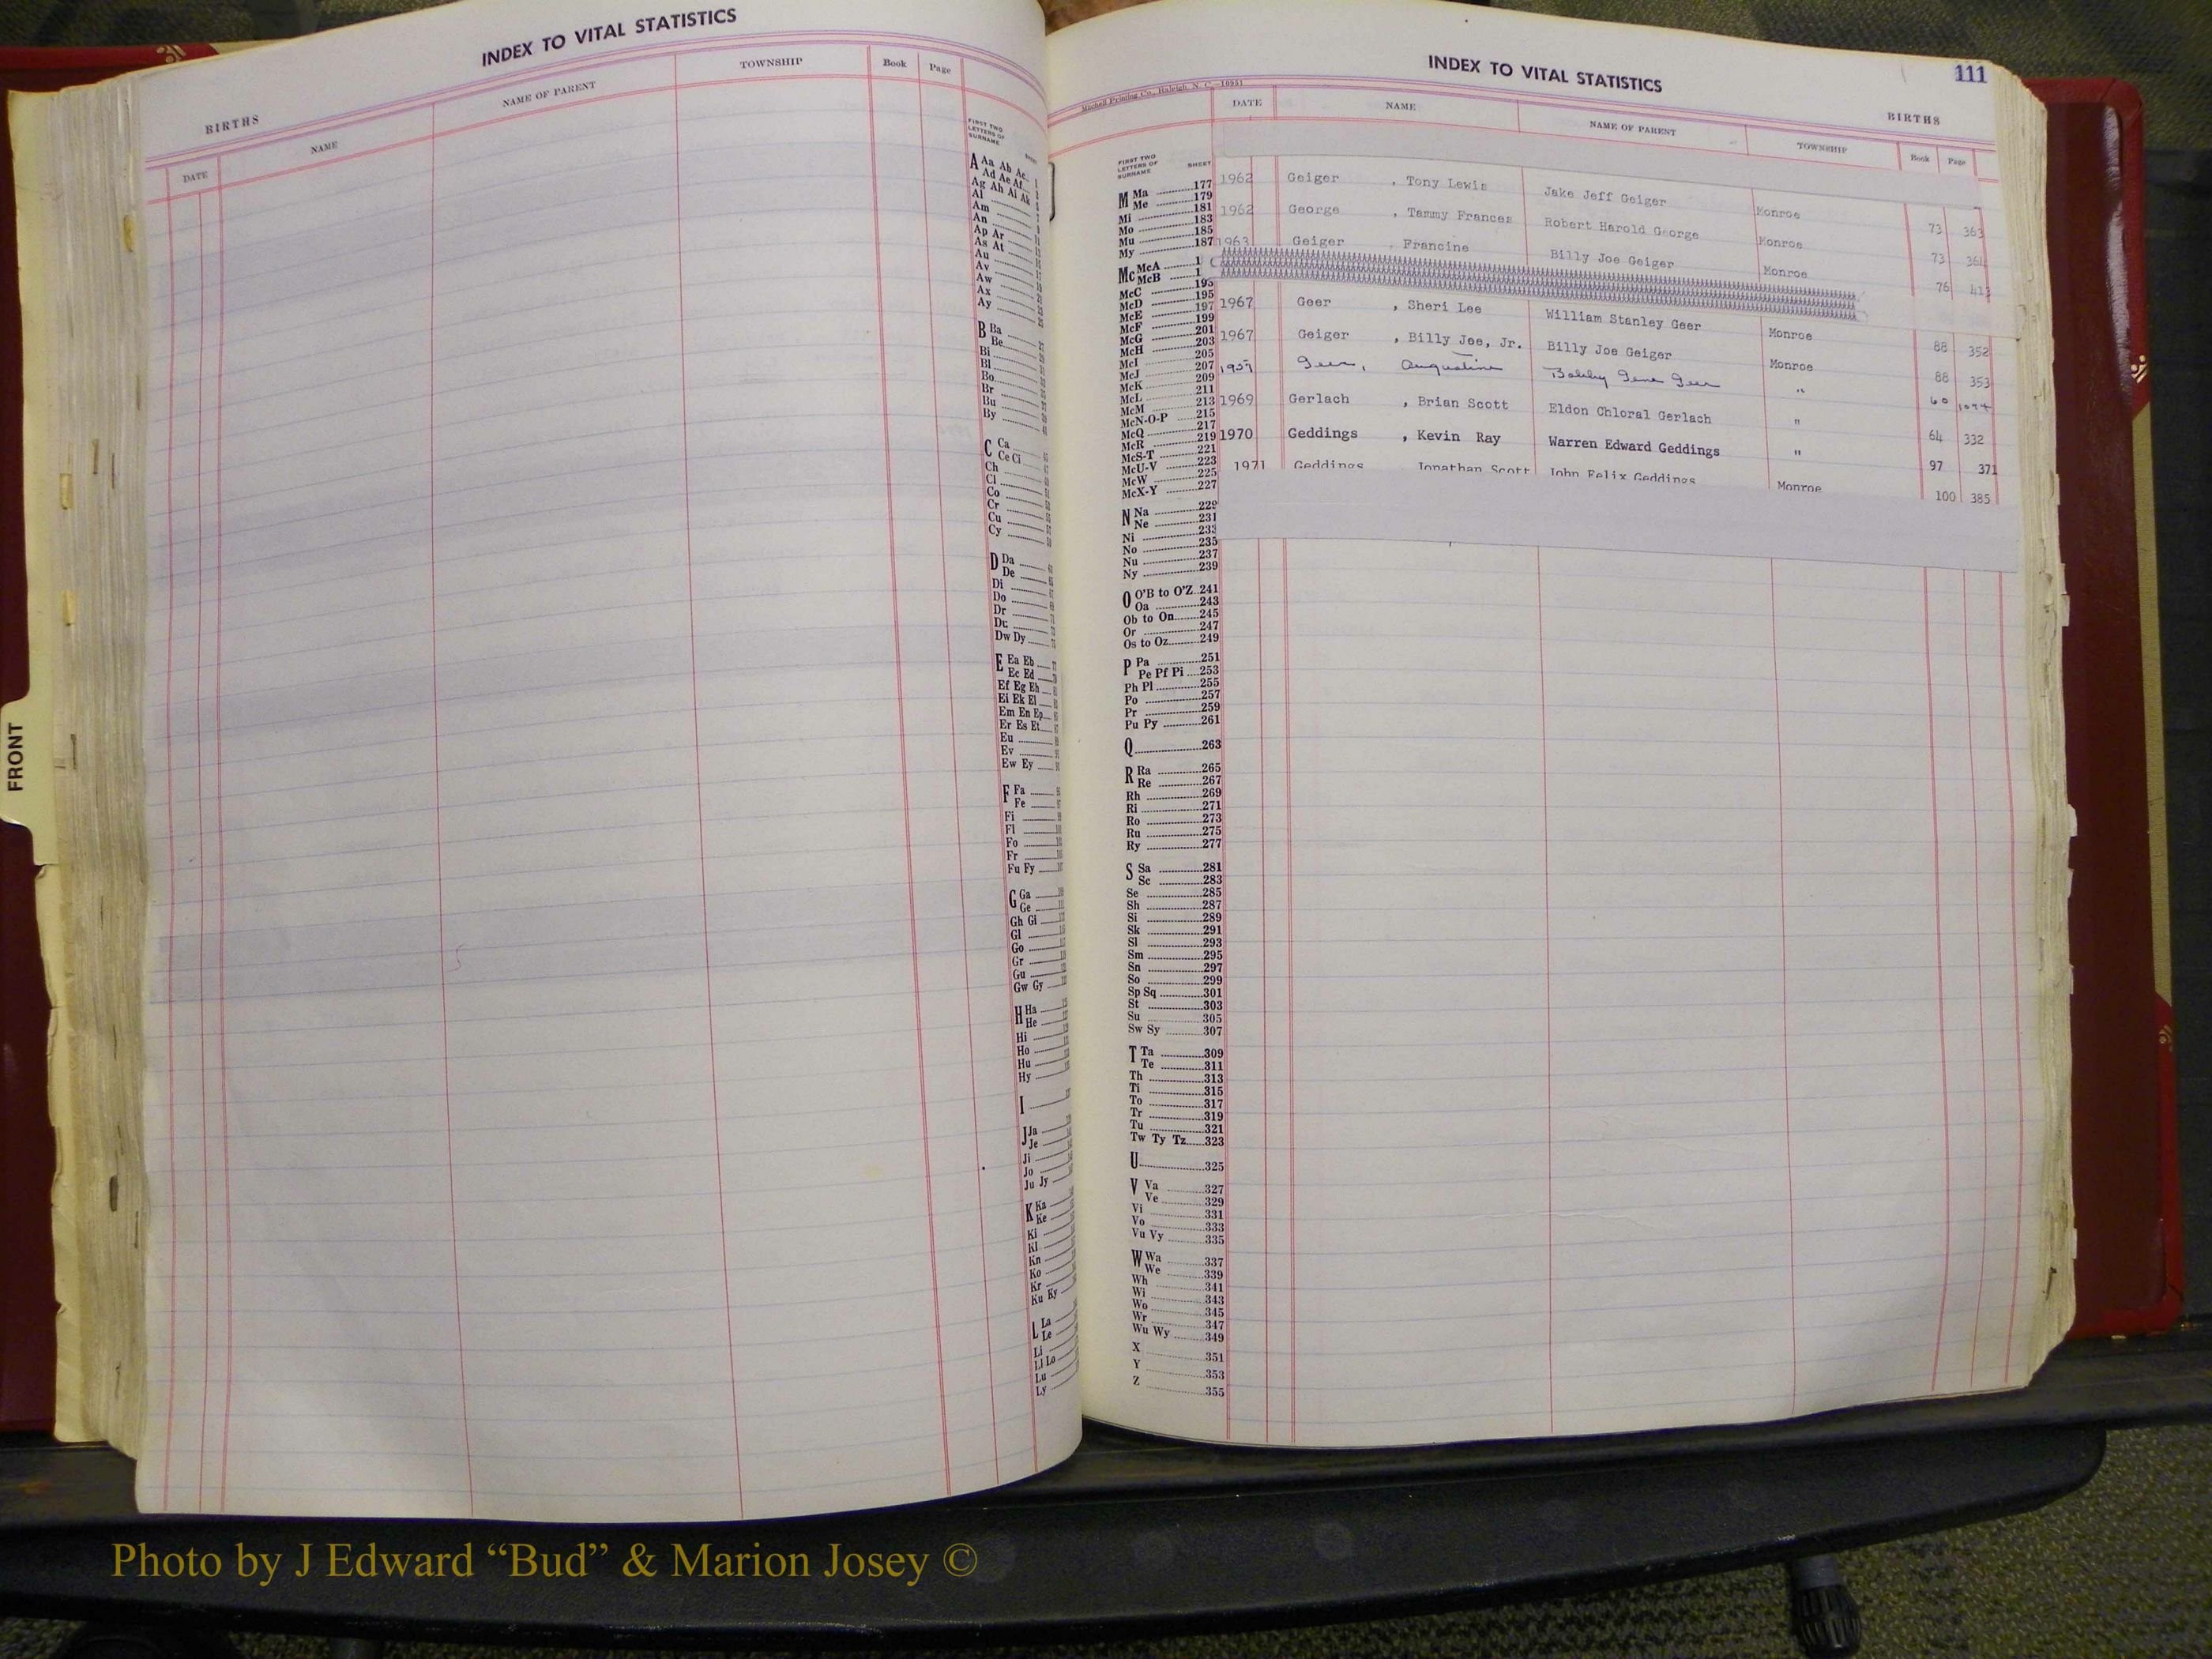 INDEX TO VITAL STATISTICS
BIRTHS
DATE NAME NAME OF PARENT TOWNSHIP Book Page
FIRST TWO
LETTERS OF
SURNAME
A Aa Ab Ac
Ad Ae Af
Ag Ah Ai Ak
Al
Am
An
Ap Ar
As At
Au
Av
Aw
Ax
Ay
B Ba
Be
Bi
Bl
Bo
Br
Bu
By
C Ca
Ce Ci
Ch
Cl
Co
Cr
Cu
Cy
D Da
De
Di
Do
Dr
Du
Dw Dy
E Ea Eb
Ec Ed
Ef Eg Eh
Ei Ek El
Em En Ep
Er Es Et
Eu
Ev
Ew Ey
F Fa
Fe
Fi
Fl
Fo
Fr
Fu Fy
G Ga
Ge
Gh Gi
Gl
Go
Gr
Gu
Gw Gy
H Ha
He
Hi
Ho
Hu
Hy
I
J Ja
Je
Ji
Jo
Ju Jy
K Ka
Ke
Ki
Kl
Kn
Ko
Kr
Ku Ky
L La
Le
Li
Ll Lo
Lu
Ly
FRONT
INDEX TO VITAL STATISTICS
111
Mitchell Printing Co., Raleigh, N. C.
BIRTHS
DATE NAME NAME OF PARENT TOWNSHIP Book Page
1962 Geiger , Tony Lewis Jake Jeff Geiger Monroe 73 363
1962 George , Tammy Frances Robert Harold George Monroe 73 364
1963 Geiger , Francine Billy Joe Geiger Monroe 76 413
1967 Geer , Sheri Lee William Stanley Geer Monroe 88 352
1967 Geiger , Billy Joe, Jr. Billy Joe Geiger Monroe 88 353
Geer, Augustine Bobby Gene Geer " 60
1969 Gerlach , Brian Scott Eldon Chloral Gerlach " 64 332
1970 Geddings , Kevin Ray Warren Edward Geddings " 97 371
1971 Geddings Jonathan Scott John Felix Geddings Monroe 100 385
FIRST TWO
LETTERS OF
SURNAME SHEET
M Ma 177
Me 179
Mi 181
Mo 183
Mu 185
My 187
Mc McA
McB
McC 193
McD 195
McE 197
McF 199
McG 201
McH 203
McI 205
McJ 207
McK 209
McL 211
McM 213
McN-O-P 215
McQ 217
McR 219
McS-T 221
McU-V 223
McW 225
McX-Y 227
N Na 229
Ne 231
Ni 233
No 235
Nu 237
Ny 239
O O'B to O'Z 241
Oa 243
Ob to On 245
Or 247
Os to Oz 249
P Pa 251
Pe Pf Pi 253
Ph Pl 255
Po 257
Pr 259
Pu Py 261
Q 263
R Ra 265
Re 267
Rh 269
Ri 271
Ro 273
Ru 275
Ry 277
S Sa 281
Sc 283
Se 285
Sh 287
Si 289
Sk 291
Sl 293
Sm 295
Sn 297
So 299
Sp Sq 301
St 303
Su 305
Sw Sy 307
T Ta 309
Te 311
Th 313
Ti 315
To 317
Tr 319
Tu 321
Tw Ty Tz 323
U 325
V Va 327
Ve 329
Vi 331
Vo 333
Vu Vy 335
W Wa 337
We 339
Wh 341
Wi 343
Wo 345
Wr 347
Wu Wy 349
X 351
Y 353
Z 355
Photo by J Edward “Bud” & Marion Josey ©